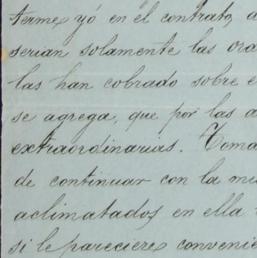 terme yó en el contrato, a
serian solamente las ora
las han cobrado sobre e
se agrega, que por las a
extraordinarias. Toma
de continuar con la mi
aclimatados en ella
si le pareciere convenie